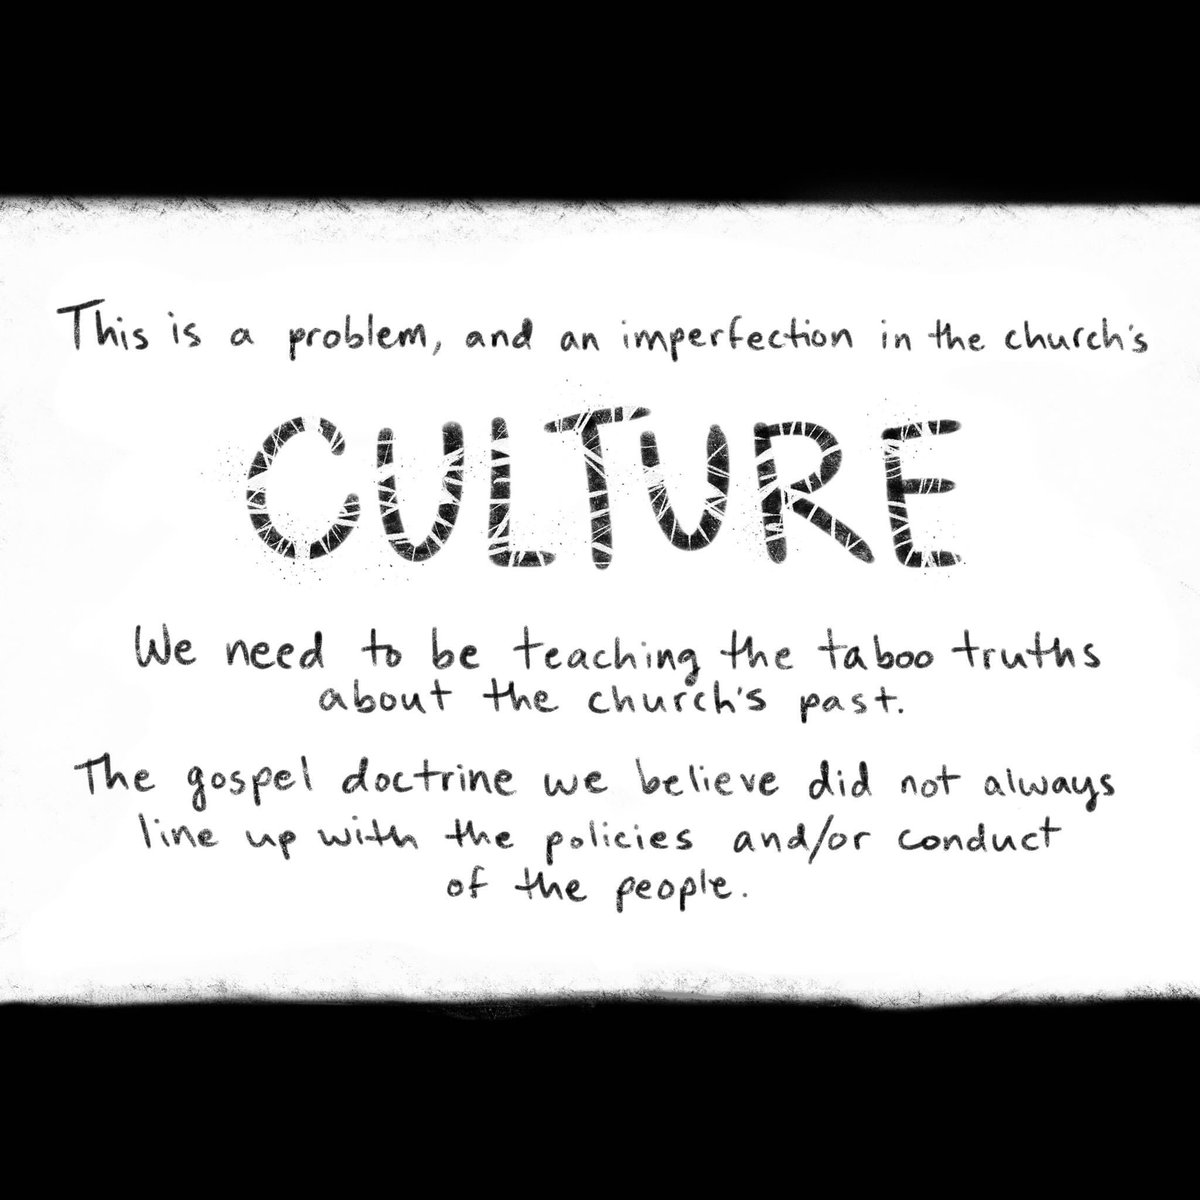 This is a problem, and an imperfection in the church's
CULTURE
We need to be teaching the taboo truths
about the church's past.
The gospel doctrine we believe did not always
line up with the policies and/or conduct
of the people.